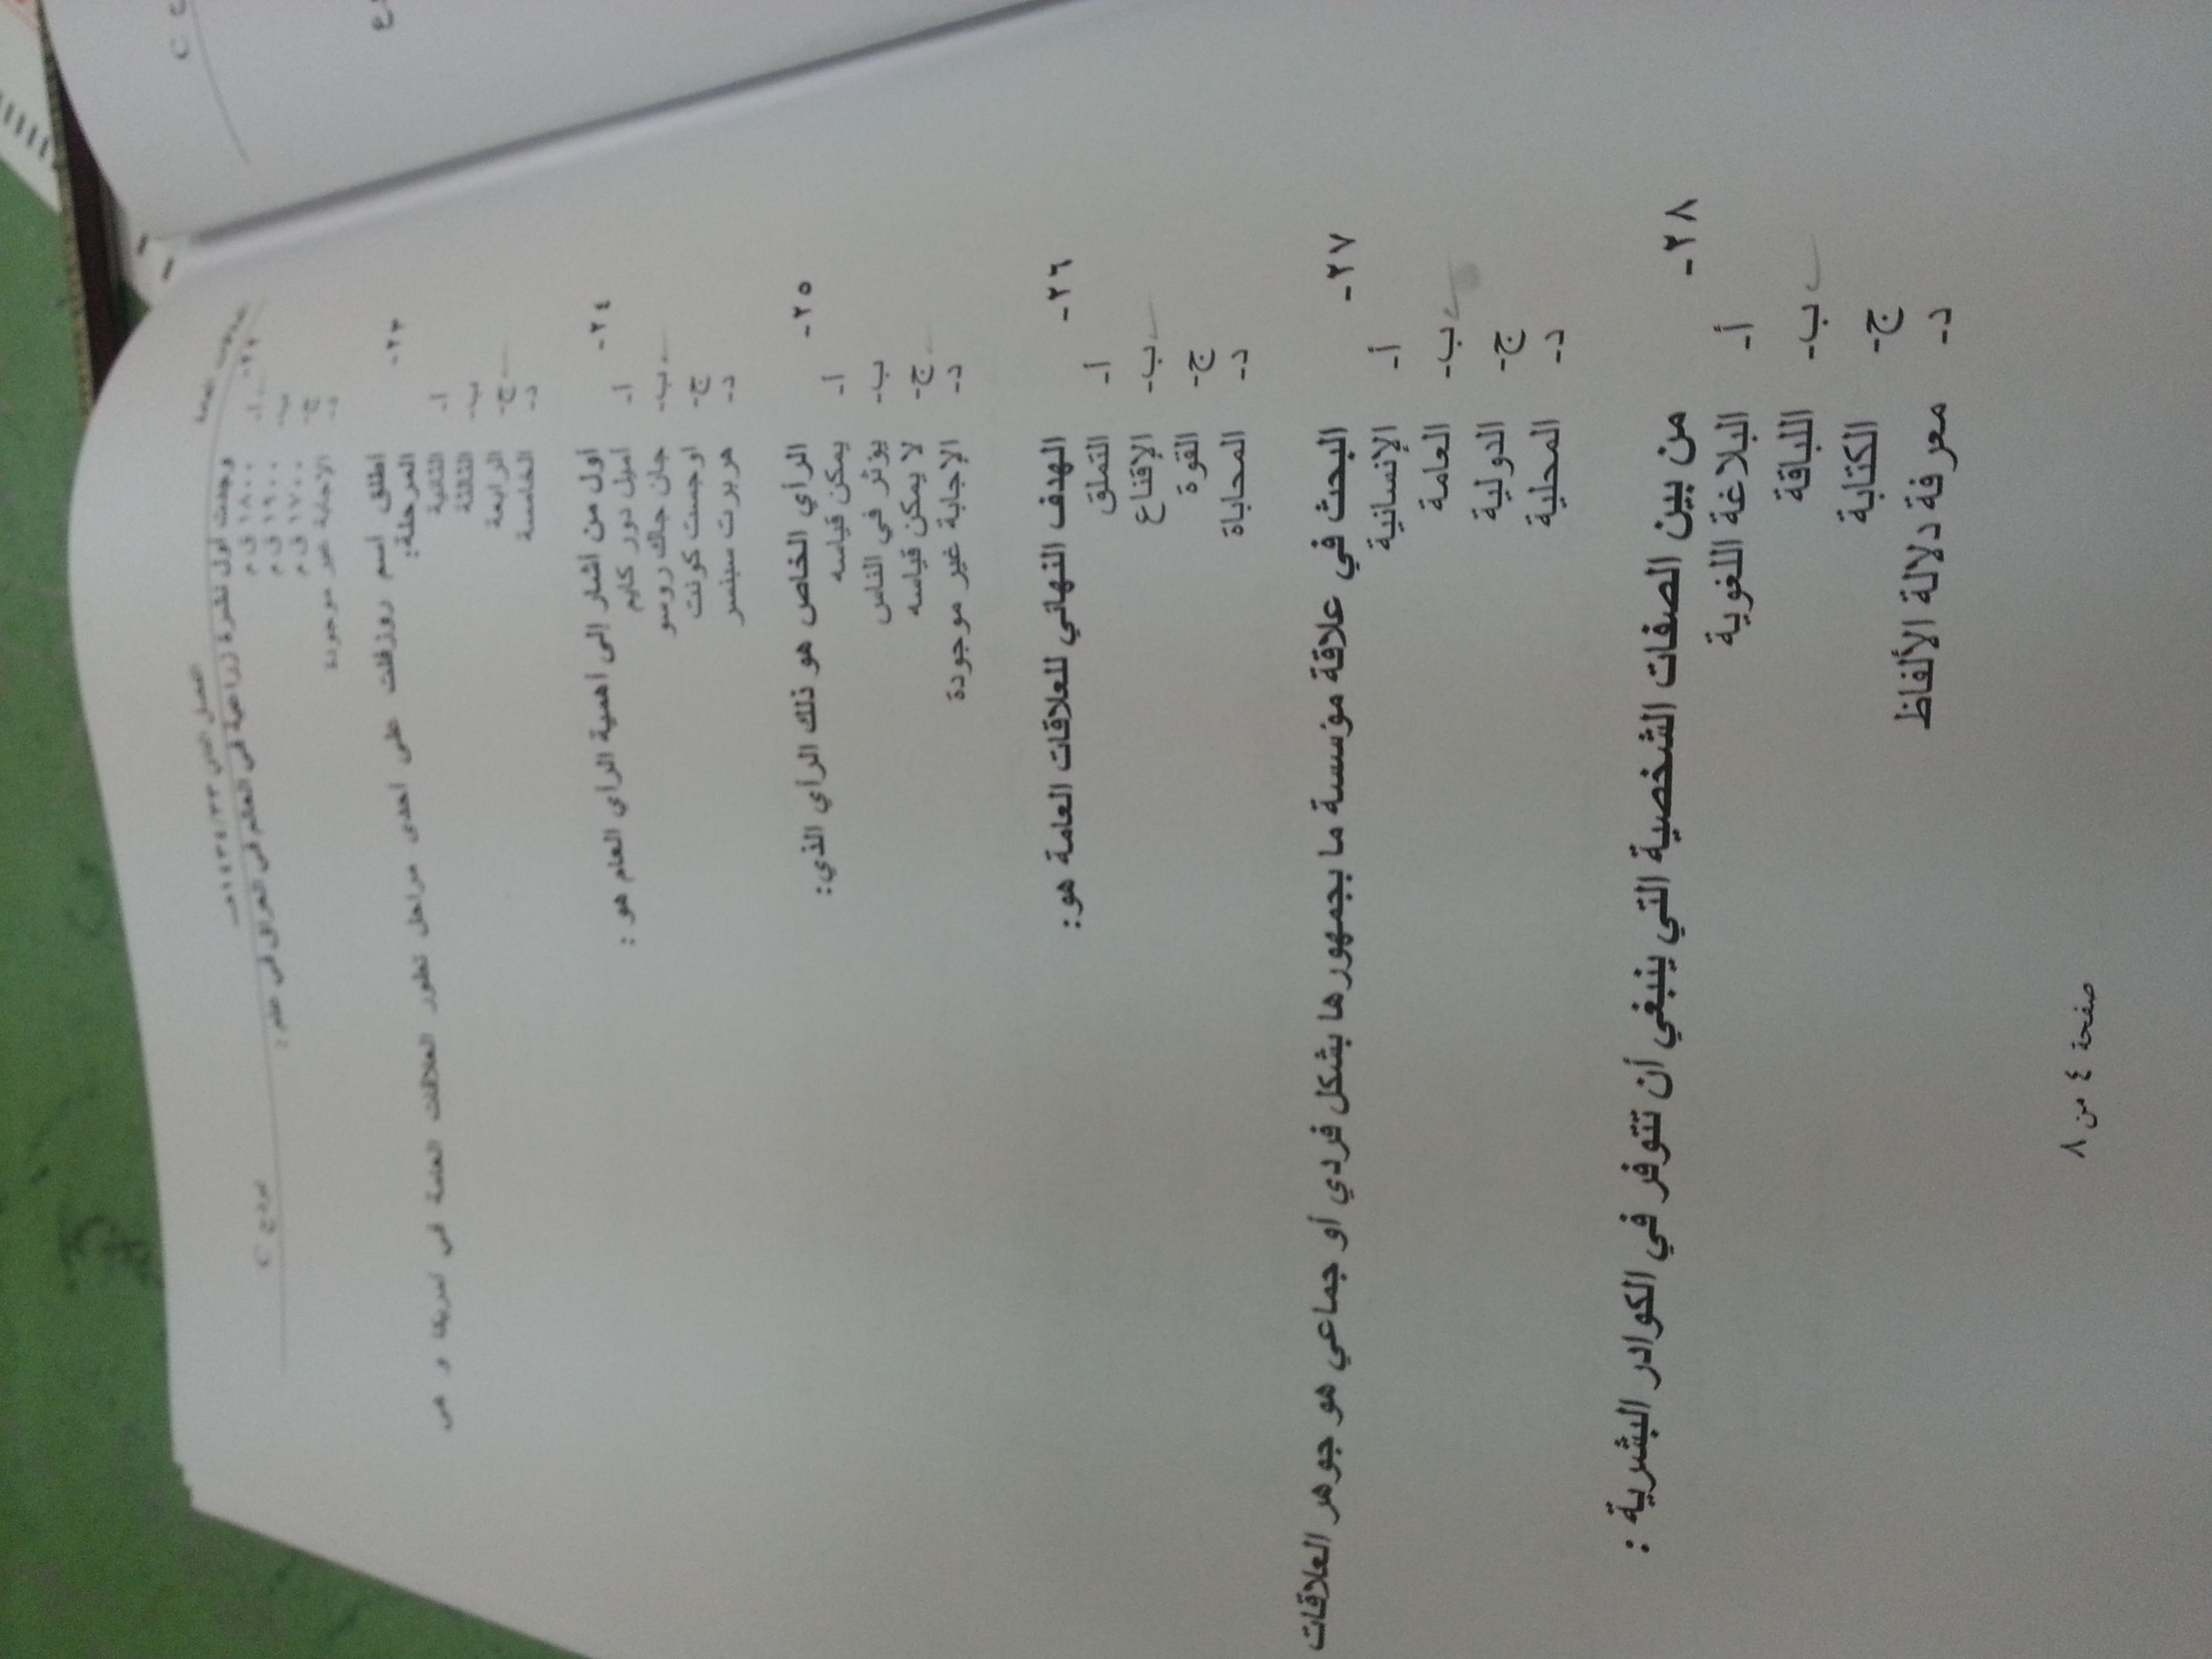 علاقات عامة
الفصل الثاني ١٤٣٤/٣٣هـ
نموذج C
٢٢- وجدت أول نشرة زراعية في العالم في العراق في عام :
أ- ١٨٠٠ ق م
ب- ١٩٠٠ ق م
ج- ١٧٠٠ ق م
د- الإجابة غير موجودة
٢٣- أطلق اسم روزفلت على احدى مراحل تطور العلاقات العامة في امريكا و هي
المرحلة:
أ- الثانية
ب- الثالثة
ج- الرابعة
د- الخامسة
٢٤- أول من أشار إلى أهمية الرأي العام هو :
أ- اميل دور كايم
ب- جان جاك روسو
ج- اوجست كونت
د- هربرت سبنسر
٢٥- الرأي الخاص هو ذلك الرأي الذي:
أ- يمكن قياسه
ب- يؤثر في الناس
ج- لا يمكن قياسه
د- الإجابة غير موجودة
٢٦- الهدف النهائي للعلاقات العامة هو:
أ- التملق
ب- الإقناع
ج- القوة
د- المحاباة
٢٧- البحث في علاقة مؤسسة ما بجمهورها بشكل فردي أو جماعي هو جوهر العلاقات
أ- الإنسانية
ب- العامة
ج- الدولية
د- المحلية
٢٨- من بين الصفات الشخصية التي ينبغي أن تتوفر في الكوادر البشرية :
أ- البلاغة اللغوية
ب- اللباقة
ج- الكتابة
د- معرفة دلالة الألفاظ
صفحة ٤ من ٨